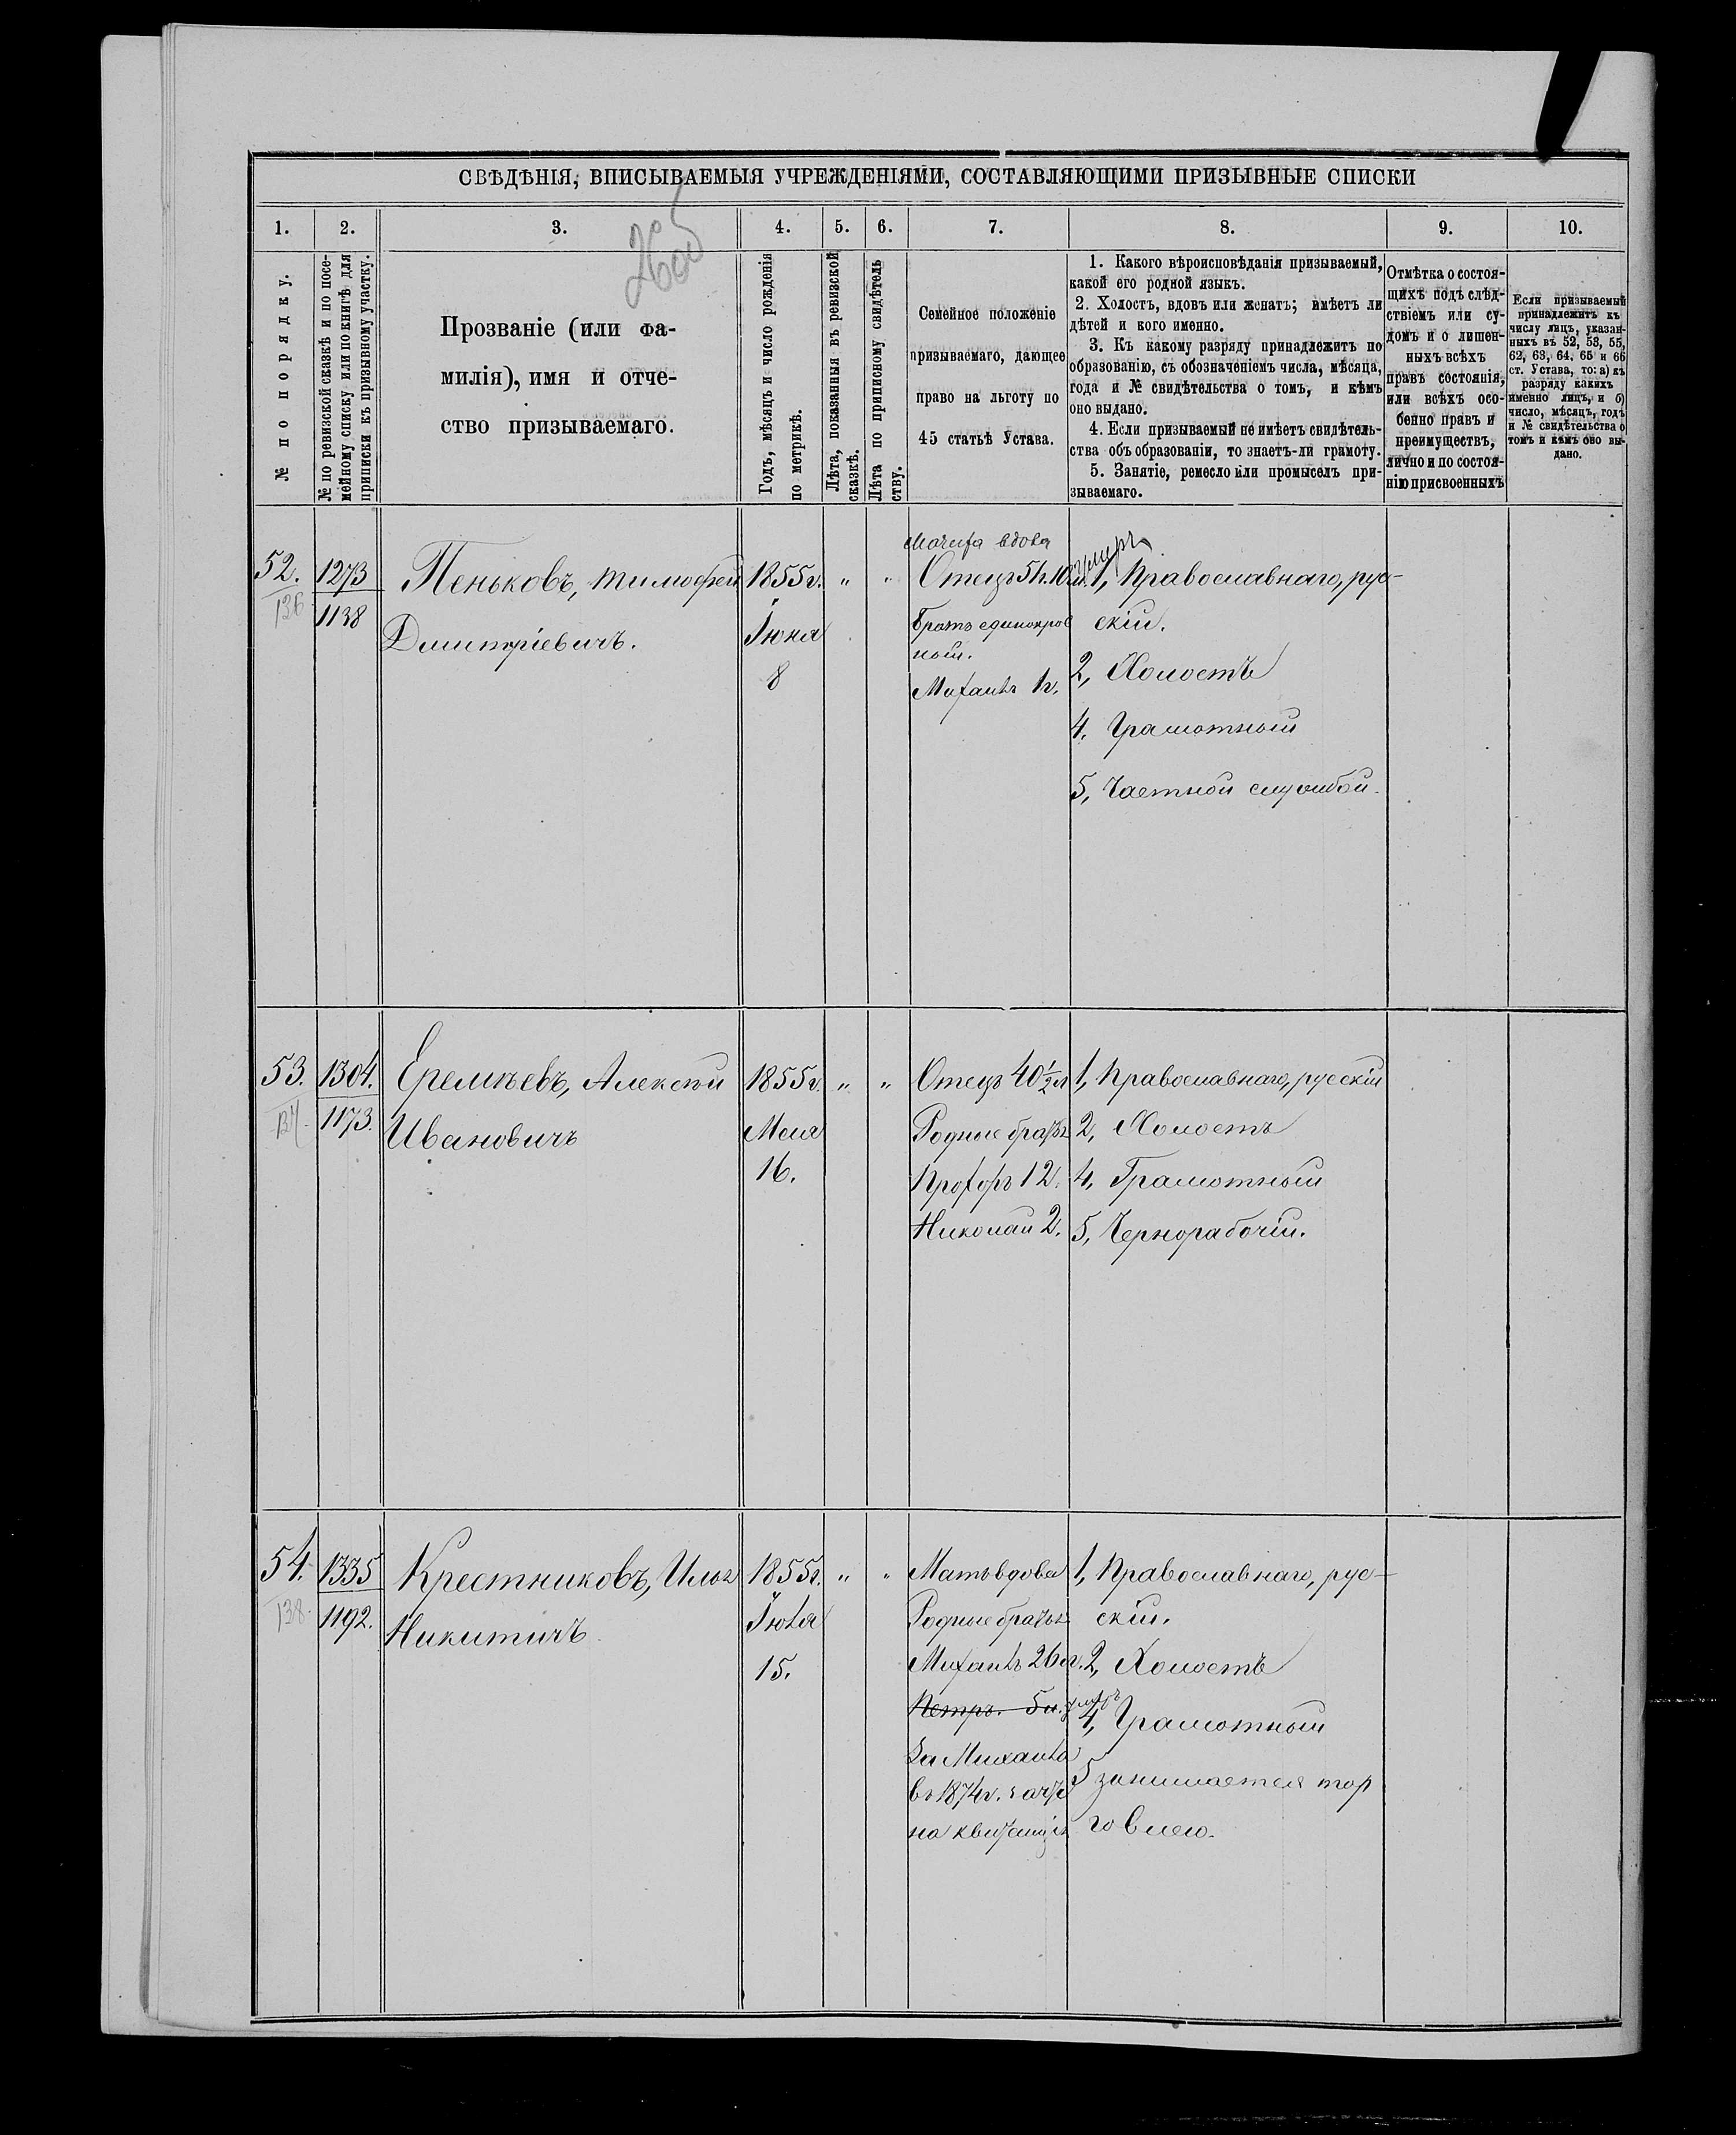 СВѢДѢНІЯ, ВПИСЫВАЕМЫЯ УЧРЕЖДЕНІЯМИ, СОСТАВЛЯЮЩИМИ ПРИЗЫВНЫЕ СПИСКИ
1.
2.
3.
4.
5.
6.
7.
8.
9.
10.
№ по порядку.
№ по ревизской сказкѣ и по посе-
мейному списку или по книгѣ для
приписки къ призывному участку.
Прозваніе (или фа-
милія), имя и отче-
ство призываемаго.
Годъ, мѣсяцъ и число рожденія
по метрикѣ.
Лѣта, показанныя въ ревизской
сказкѣ.
Лѣта по приписному свидѣтель
ству.
Семейное положеніе
призываемаго, дающее
право на льготу по
45 статьѣ Устава.
1. Какого вѣроисповѣданія призываемый,
какой его родной языкъ.
2. Холостъ, вдовъ или женатъ; имѣетъ ли
дѣтей и кого именно.
3. Къ какому разряду принадлежитъ по
образованію, съ обозначеніемъ числа, мѣсяца,
года и № свидѣтельства о томъ, и кѣмъ
оно выдано.
4. Если призываемый не имѣетъ свидѣтель-
ства объ образованіи, то знаетъ-ли грамоту.
5. Занятіе, ремесло или промыселъ при-
зываемаго.
Отмѣтка о состоя-
щихъ подъ слѣд-
ствіемъ или су-
домъ и о лишен-
ныхъ всѣхъ
правъ состоянія,
или всѣхъ осо-
бенно правъ и
преимуществъ,
лично и по состоя-
нію присвоенныхъ
Если призываемый
принадлежитъ къ
числу лицъ, указан-
ныхъ въ 52, 53, 55,
62, 63, 64, 65 и 66
ст. Устава, то: а) къ
разряду какихъ
именно лицъ, и б)
число, мѣсяцъ, годъ
и № свидѣтельства о
томъ и кѣмъ оно вы-
дано.
52.
136
1273
1138
Пеньковъ, Тимофей
Дмитріевичъ.
1855г.
Іюня
8
" "
Мачиха вдова
Отецъ 51г.
умеръ
Братъ единокров
ный.
Михаилъ 1г.
1, Православнаго, рус-
скій.
2, Холостъ
4. Грамотный
5, Частной службой.
53.
137.
1304.
1173.
Еремѣевъ, Алексѣй
Ивановичъ
1855г.
Мая
16.
" "
Отецъ 40½л
Родные братья
Прохоръ 12.
Николай 2.
1, Православнаго, русскій
2, Холостъ
4, Грамотный
5, Чернорабочій.
54.
138.
1335
1192.
Крестниковъ, Илья
Никитичъ
1855г.
Іюля
15.
" "
Мать вдова
Родные братья
Михаилъ 26л.
Петръ. 5л. умеръ
За Михаила
въ 1874г.
на квитанція
1, Православнаго, рус-
скій.
2, Холостъ
4, Грамотный
5 занимается тор
говлею.